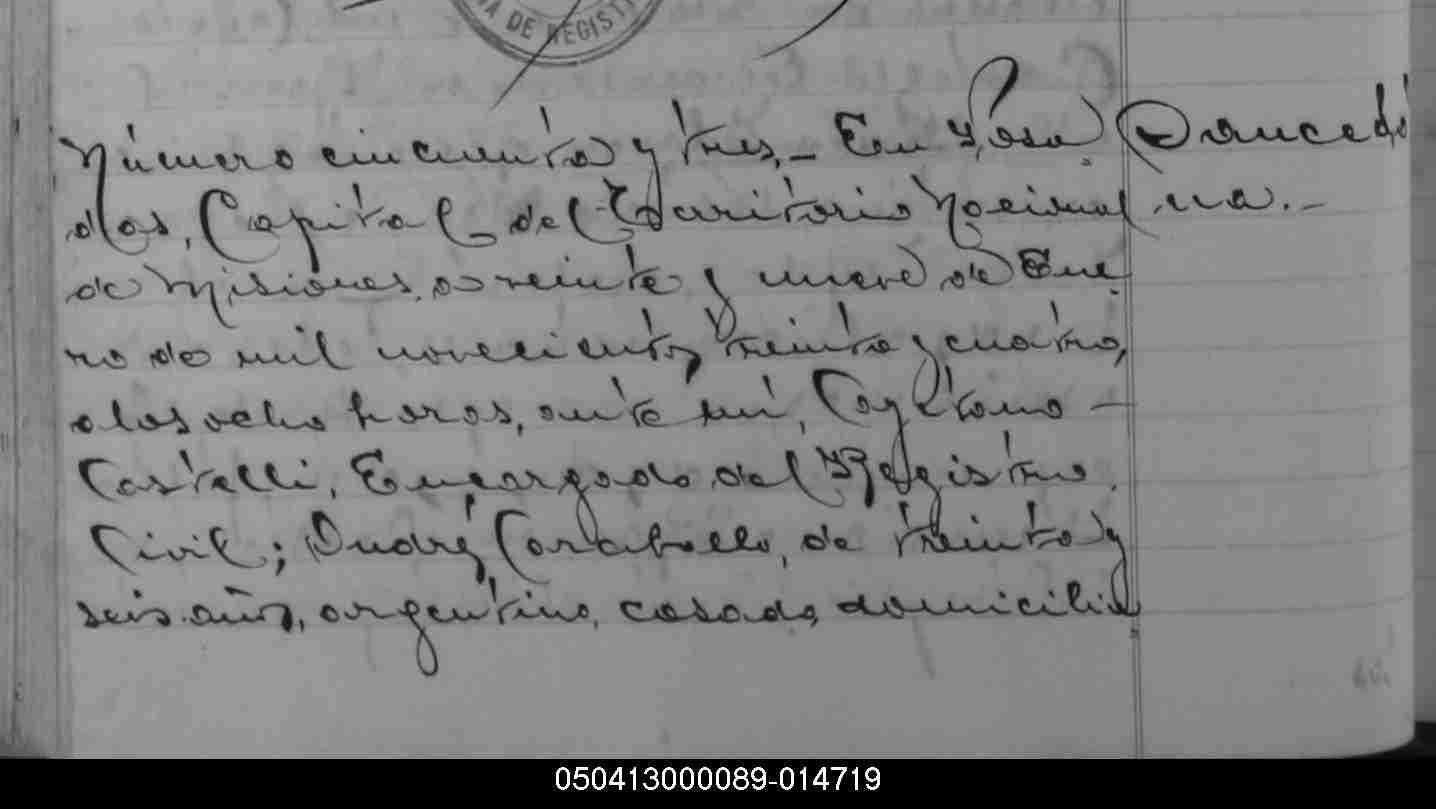 NA DE REGISTR
Número cincuenta y tres.- En Posa
das, Capital del Territorio Nacional
de Misiones, a veinte y nueve de Ene
ro de mil novecientos treinta y cuatro,
a las ocho horas, ante mí, Cayetano -
Castelli, Encargado del Registro
Civil; André Caraballo, de treinta y
seis años, argentino, casado, domicilia
na.-
050413000089-014719